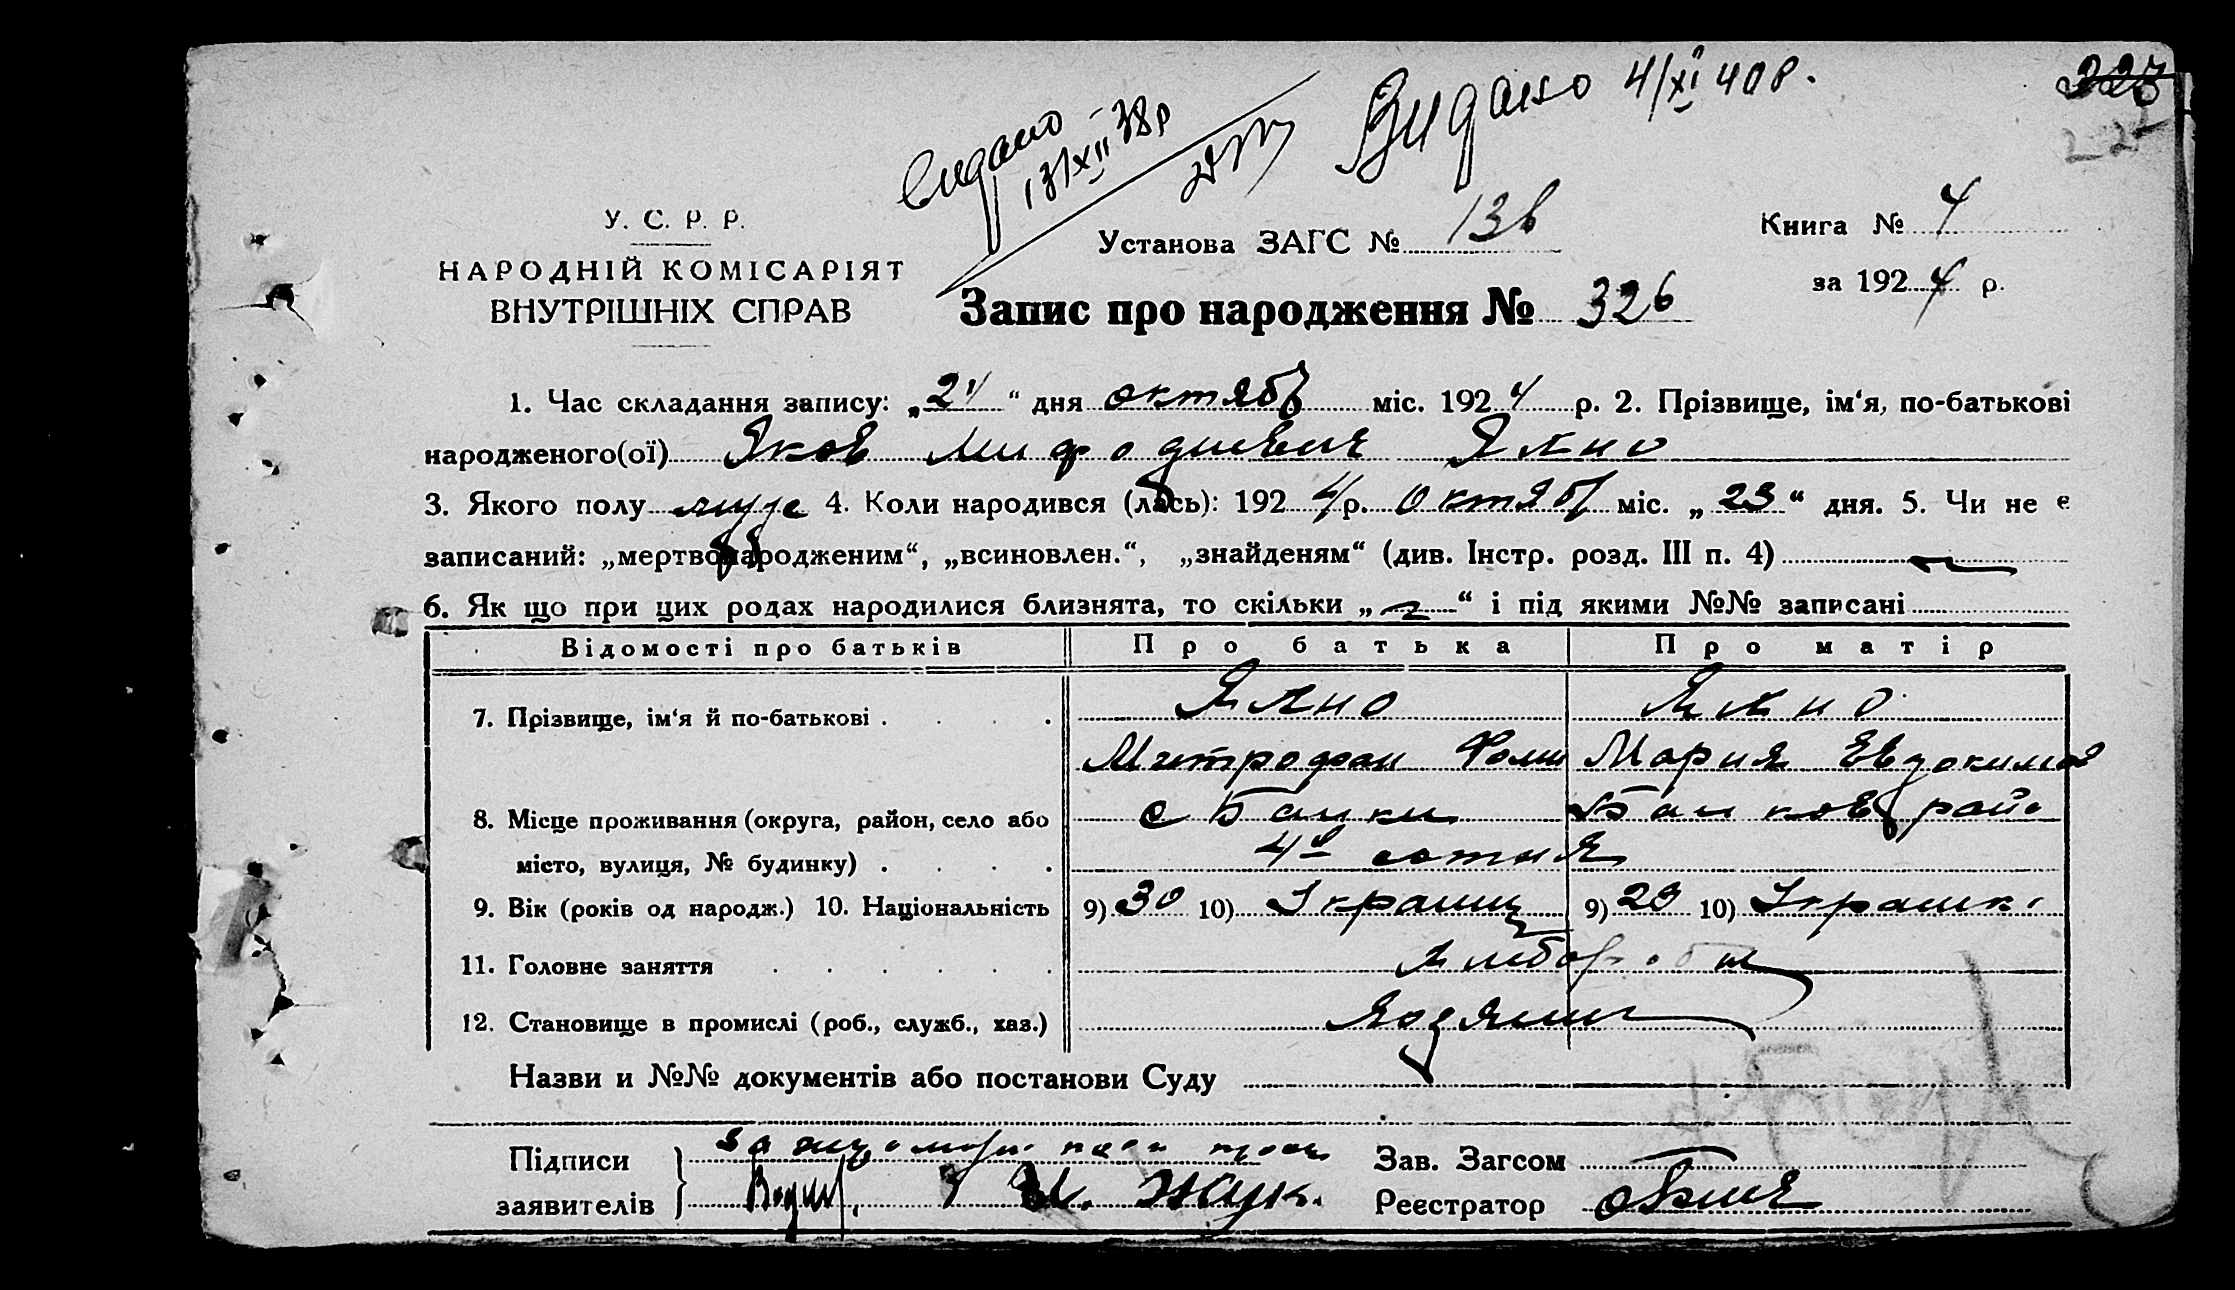 Видано 4/XI 40 р.
Видано
13/XII 38 р
227
У. С. Р. Р.
НАРОДНІЙ КОМІСАРІЯТ
ВНУТРІШНІХ СПРАВ
Установа ЗАГС № 136
Книга № 4
за 1924 р.
Запис про народження № 326
1. Час складання запису: „24“ дня октяб міс. 1924 р. 2. Прізвище, ім‘я, по-батькові
народженого(ої) Яков
3. Якого полу муж 4. Коли народився (лась): 1924 р. Октяб міс. „23“ дня. 5. Чи не є
записаний: „мертвонародженим“, „всиновлен.“, „знайденям“ (див. Інстр. розд. III п. 4)
6. Як що при цих родах народилися близнята, то скільки „ “ і під якими №№ записані
Відомості про батьків Про батька Про матір
7. Прізвище, ім‘я й по-батькові
Митрофан Фоми Мария Евдокимов
8. Місце проживання (округа, район, село або с Банки Банков рай
місто, вулиця, № будинку) 4я сотня
9. Вік (років од народж.) 10. Національність 9) 30 10) Украинц 9) 29 10) Украинк
11. Головне заняття
12. Становище в промислі (роб., служб., хаз.) Хозяин
Назви и №№ документів або постанови Суду
Підписи
заявителів И. Жук.
Зав. Загсом
Реєстратор